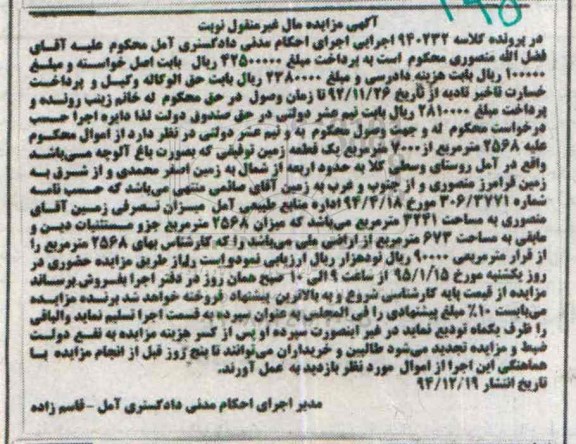 ۱۹۵
آگهی مزایده مال غیرمنقول نوبت
در پرونده کلاسه ۹۴۰۲۳۲ اجرایی اجرای احکام مدنی دادگستری آمل محکوم علیه آقای
فضل الله منصوری محکوم است به پرداخت مبلغ ۴۲۵۰۰۰۰۰ ریال بابت اصل خواسته و مبلغ
۱۰۰۰۰۰ ریال بابت هزینه دادرسی و مبلغ ۲۳۸۰۰۰۰ ریال بابت حق الوکاله وکیل و پرداخت
خسارت تاخیر تادیه از تاریخ ۹۲/۱۱/۲۶ تا زمان وصول در حق محکوم له خانم زینب روننده و
پرداخت مبلغ ۲۸۱۰۰۰۰ ریال بابت نیم عشر دولتی در حق صندوق دولت لذا دایره اجرا حسب
درخواست محکوم له و جهت وصول محکوم به و نیم عشر دولتی در نظر دارد از اموال محکوم
علیه ۲۵۶۸ مترمربع از ۷۰۰۰ مترمربع یک قطعه زمین توقیفی که بصورت باغ آلوچه می‌باشد
واقع در آمل روستای وسطی کلا به حدود اربعه از شمال به زمین اصغر محمدی و از شرق به
زمین فرامرز منصوری و از جنوب و غرب به زمین آقای صائمی منتهی می‌باشد که حسب نامه
شماره ۳۰۶/۳۷۷۱ مورخ ۹۴/۴/۱۸ اداره منابع طبیعی آمل میزان تصرفی زمین آقای
منصوری به مساحت ۳۲۴۱ مترمربع می‌باشد که میزان ۲۵۶۸ مترمربع جزو مستثنیات دین و
مابقی به مساحت ۶۷۳ مترمربع از اراضی ملی می‌باشد را که کارشناس بهای ۲۵۶۸ مترمربع را
از قرار مترمربعی ۹۰۰۰۰ ریال نودهزار ریال ارزیابی نمودواست رااز طریق مزایده حضوری در
روز یکشنبه مورخ ۹۵/۱/۱۵ از ساعت ۹ الی ۱۰ صبح همان روز در دفتر اجرا بفروش برساند
مزایده از قیمت پایه کارشناسی شروع و به بالاترین پیشنهاد فروخته خواهد شد برنده مزایده
می‌بایست ۱۰٪ مبلغ پیشنهادی را فی المجلس به عنوان سپرده به قسمت اجرا تسلیم نماید والباقی
را ظرف یکماه تودیع نماید در غیر اینصورت سپرده او پس از کسر هزینه مزایده به نفع دولت
ضبط و مزایده تجدید می‌شود طالبین و خریداران می‌توانند تا پنج روز قبل از انجام مزایده با
هماهنگی این اجرا از اموال مورد نظر بازدید به عمل آورند.
تاریخ انتشار ۹۴/۱۲/۱۹
مدیر اجرای احکام مدنی دادگستری آمل -قاسم زاده